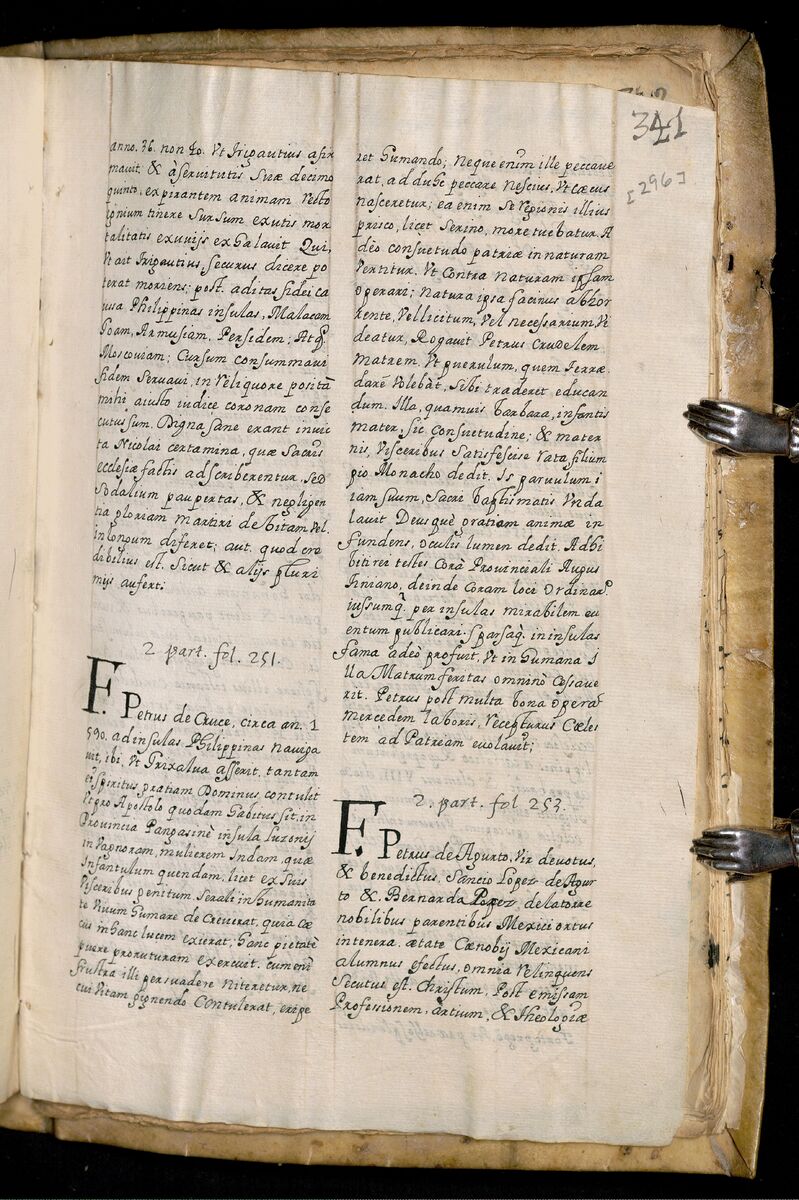 341
[296]
anno. 36. non 40. Vt Irigautius afir
mavit. & à servitutis suæ decimo
quinto, expirantem animam Vesto
ignium tinere sursum exutis mor
talitatis exuvijs exhalauit Qui,
Vt ait Irigautius, securus dicere po
terat moriens; post. aditas fidei ca
ussa Philippinas insulas, Malacam
Goam, Armusiam, Persidem; Atq.
Moscouiam; Cursum consummaui
fidem servaui, in Veliquore positā
mihi aiusto iudice coronam conse
cutus sum. Digna sane erant invic
ta Nicolai certamina, quæ sacris
ecclesiæ fastis adscriberentur, sed
Sodalium paupertas, & negligen
tia gloriam martiri debitam Vel.
in longum diferet; aut. quod cre
dibilius est. Sicut & alijs pluri
mis aufert:
2 part. fol. 251.
F. Petrus de Cruce, circa an. 1
590. ad insulas Philippinas naviga
uit, ibi, Vt Grixalua asserit. tantam
ei spiritus gratiam Dominus contulit
Vt pro Apostolo quodam habitus sit. in
Provincia Pangasinè insula Luzonis
in Vagnoram, mulierem Indam, quæ
Infantulum quendam, licet ex suis
Visceribus genitum. serali inhumanita
te Vivum humare decreverat, quia cæ
cus in hanc lucem exierat; hanc pietatè
puere proruturam exercuit. cum enī
frustra illi persuadere niteretur, ne
cui Vitam gignendo Contulerat, eripe
ret humando; neque enim ille peccaue
rat, ad dubc peccare nescius, Vt cæcus
nasceretur; ea enim se Vegionis illius
prisco, licet serino, more tuebatur. A
deo consuetudo patriæ in naturam
Vertitur. Vt contra naturam ipsam
operari; natura ipsa facinus abhor
rente, Vel licitum, Vel necessarium Vi
deatur, Rogavit Petrus crudelem
matrem. Vt puerulum, quem terræ
darē Volebat, sibi traderet educan
dum. Illa, quamuis barbara, infantis
mater, sic consuetudine; & mater
nis, Visceribus satisfecise rata filium
pio Monacho dedit. Is paruulum i
iam suum, sacri baptismatis Vnda
lauit Deusquè gratiam animæ in
fundens, oculis lumen dedit. Adhi
biti rei testes Corā Provinciali Augus
tiniano, deinde Coram loci Ordinar.
iussumq. per insulas mirabilem eu
entum publicari. sparsaq. in insulas
fama adeò profuit, Vt in humana I
lla Matrum feritas omninò Cessaue
rit. Petrus post multa bona opera
mercedem laboris, Vecepturus Cæles
tem ad Patriam euolauit;
2. part. fol 253.
F. Petrus de Agurto, Vir devotus,
& benedictus, Sancio Lopez de Agur
to & Bernarda Lopez, de la torre
nobilibus parentibus Mexici ortus
in tenera. ætate Cænobij Mexicani
alumnus efectus, omnia Velinquens
secutus est. Christum, Post emissam
Professionem, artium, & theologiæ